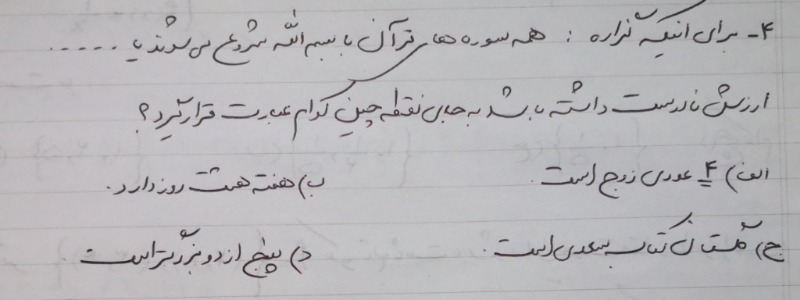 ۴- برای اینکه گزاره : همه سوره های قرآن با بسم الله شروع می شوند یا .....
ارزش نادرست داشته باشد به جای نقطه چین کدام عبارت قرار گیرد؟
الف) ۴ عددی زوج است. ب) هفته هشت روز دارد.
ج) گلستان کتاب سعدی است. د) پنج از دو بزرگتر است